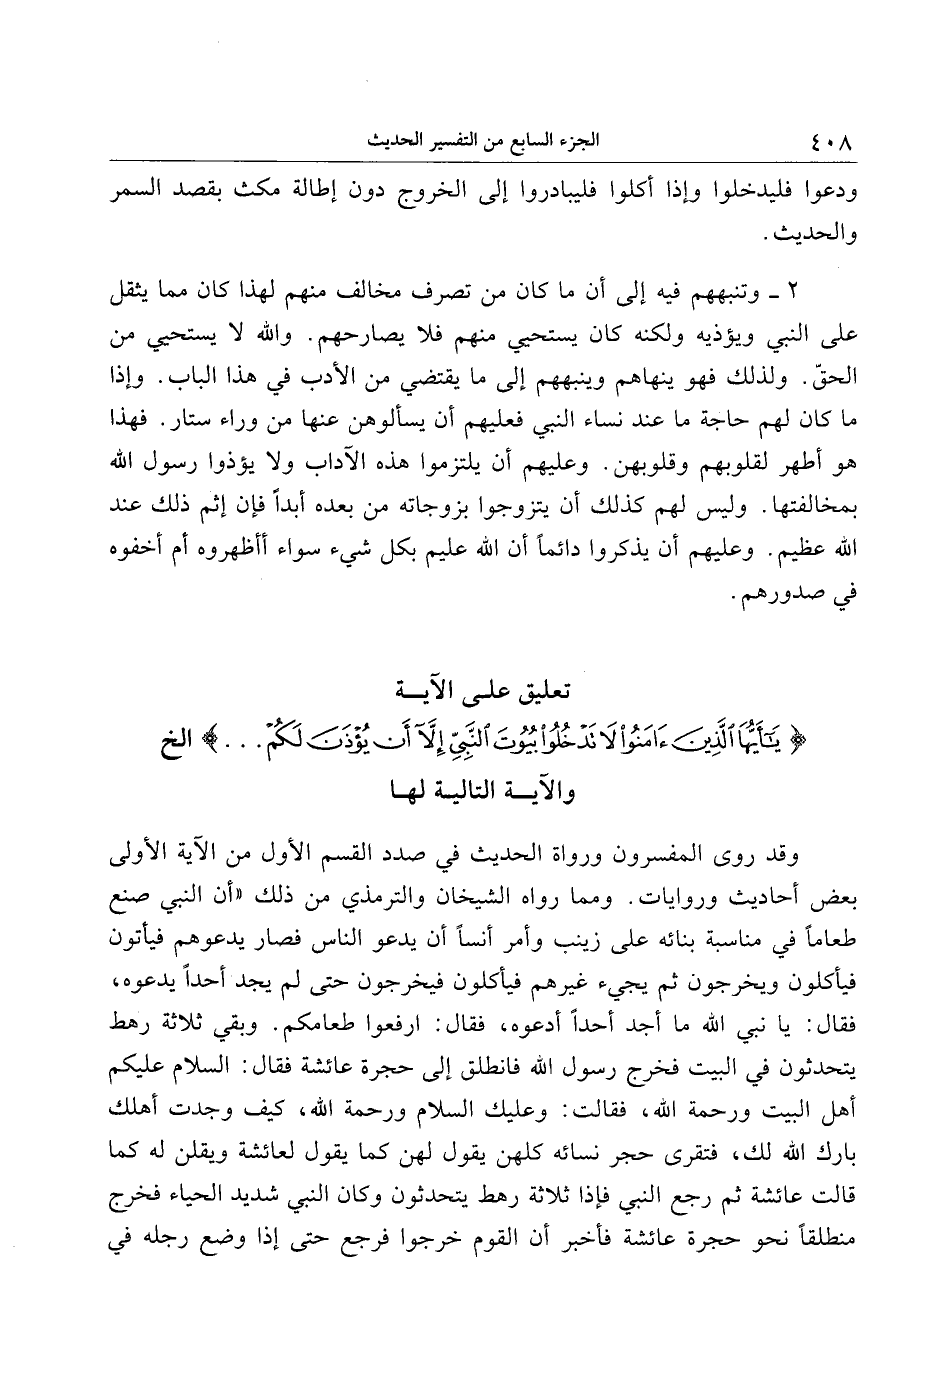 ٤٠٨ الجزء السابع من التفسير الحديث
ودعوا فليدخلوا وإذا أكلوا فليبادروا إلى الخروج دون إطالة مكث بقصد السمر
والحديث.
٢ ـ وتنبههم فيه إلى أن ما كان من تصرف مخالف منهم لهذا كان مما يثقل
على النبي ويؤذيه ولكنه كان يستحيي منهم فلا يصارحهم. والله لا يستحيي من
الحقّ. ولذلك فهو ينهاهم وينبههم إلى ما يقتضي من الأدب في هذا الباب. وإذا
ما كان لهم حاجة ما عند نساء النبي فعليهم أن يسألوهن عنها من وراء ستار. فهذا
هو أطهر لقلوبهم وقلوبهن. وعليهم أن يلتزموا هذه الآداب ولا يؤذوا رسول الله
بمخالفتها. وليس لهم كذلك أن يتزوجوا بزوجاته من بعده أبداً فإن إثم ذلك عند
الله عظيم. وعليهم أن يذكروا دائماً أن الله عليم بكل شيء سواء أأظهروه أم أخفوه
في صدورهم.
تعليق على الآية
﴿ يَٰٓأَيُّهَا ٱلَّذِينَ ءَامَنُواْ لَا تَدْخُلُواْ بُيُوتَ ٱلنَّبِيِّ إِلَّآ أَن يُؤْذَنَ لَكُمْ. . . ﴾ الخ
والآية التالية لها
وقد روى المفسرون ورواة الحديث في صدد القسم الأول من الآية الأولى
بعض أحاديث وروايات. ومما رواه الشيخان والترمذي من ذلك «أن النبي صنع
طعاماً في مناسبة بنائه على زينب وأمر أنساً أن يدعو الناس فصار يدعوهم فيأتون
فيأكلون ويخرجون ثم يجيء غيرهم فيأكلون فيخرجون حتى لم يجد أحداً يدعوه،
فقال: يا نبي الله ما أجد أحداً أدعوه، فقال: ارفعوا طعامكم. وبقي ثلاثة رهط
يتحدثون في البيت فخرج رسول الله فانطلق إلى حجرة عائشة فقال: السلام عليكم
أهل البيت ورحمة الله، فقالت: وعليك السلام ورحمة الله، كيف وجدت أهلك
بارك الله لك، فتقرى حجر نسائه كلهن يقول لهن كما يقول لعائشة ويقلن له كما
قالت عائشة ثم رجع النبي فإذا ثلاثة رهط يتحدثون وكان النبي شديد الحياء فخرج
منطلقاً نحو حجرة عائشة فأخبر أن القوم خرجوا فرجع حتى إذا وضع رجله في